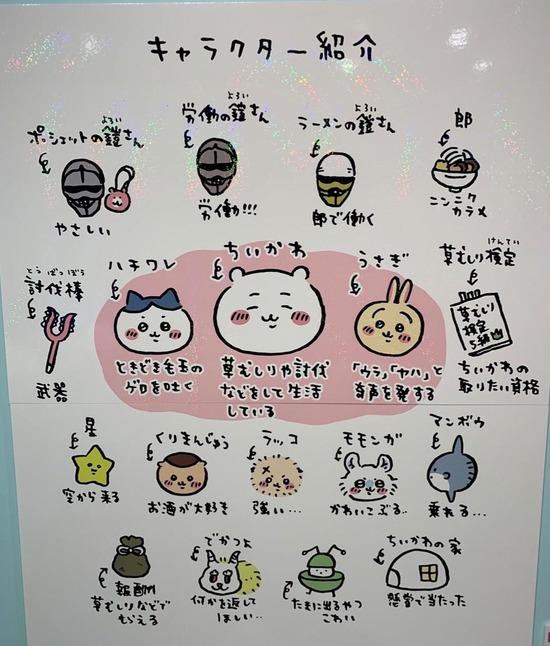 キャラクター紹介
ポシェットの鎧さん
よろい
やさしい
労働の鎧さん
よろい
労働!!!
ラーメンの鎧さん
よろい
郎で働く
郎
ニンニク
カラメ
とうばつぼう
討伐棒
武器
ハチワレ
ときどき毛玉の
ゲロを吐く
ちいかわ
草むしりや討伐
などをして生活
している
うさぎ
「ウラ」「ヤハ」と
奇声を発する
草むしり検定
けんてい
草むしり
検定
5級
ちいかわの
取りたい資格
星
空から来る
くりまんじゅう
お酒が大好き
ラッコ
強い…
モモンガ
かわいこぶる..
マンボウ
乗れる…
報酬
草むしりなどで
もらえる
でかつよ
何かを返して
ほしい..
たまに出るやつ
こわい
ちいかわの家
懸賞で当たった